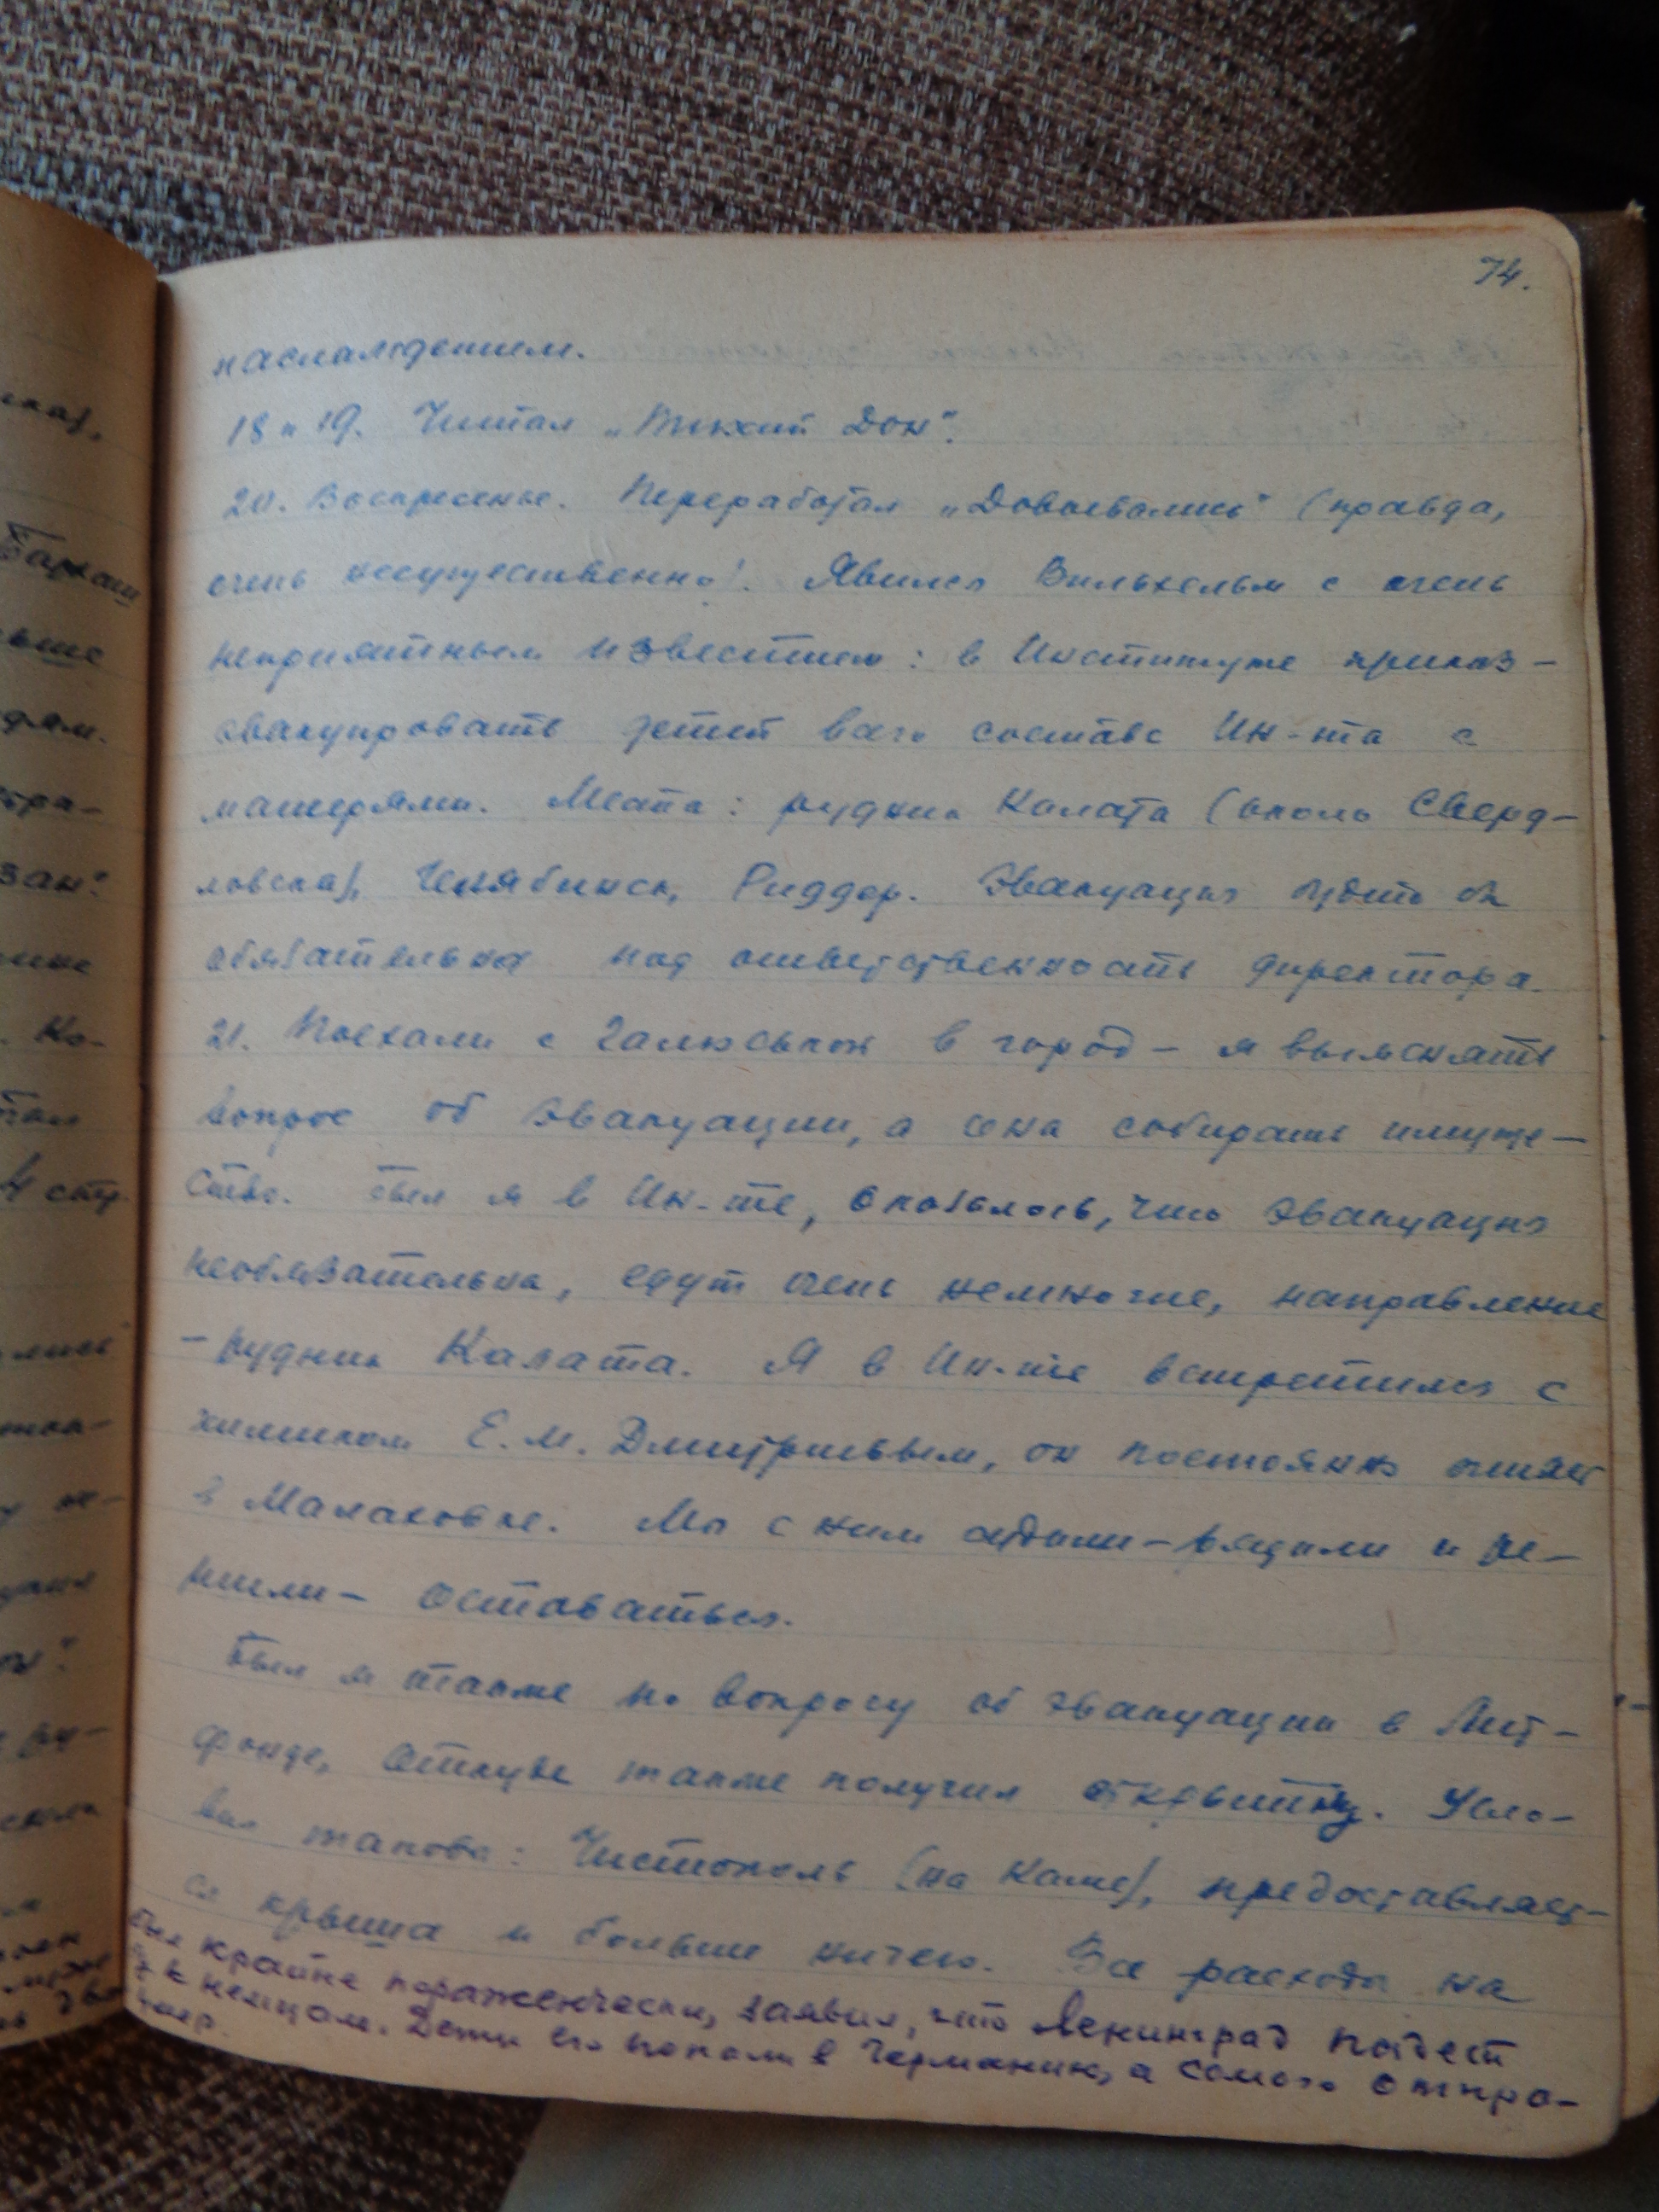 74.
наслаждением.
18 и 19. Читал „Тихий Дон".
20. Воскресенье. Переработал „Довоевались" (правда,
очень несущественно). Явился Вильхельм с очень
неприятным известием: в Институте приказ –
эвакуировать детей всего состава Ин-та с
матерями. Места: рудник Калата (около Сверд-
ловска), Челябинск, Риддер. Эвакуация будто бы
обязательна под ответственность директора.
21. Поехали с Галюськой в город – я выяснять
вопрос об эвакуации, а она собирать имуще-
ство. Был я в Ин-те, оказалось, что эвакуация
необязательна, едут очень немногие, направление
– рудник Калата. Я в Ин-те встретился с
химиком Е. М. Дмитриевым, он постоянно
в Малаховке. Мы с ним судили-рядили и ре-
шили – оставаться.
Был я также по вопросу об эвакуации в Лит-
фонде, откуда также получил открытку. Усло-
вия таковы: Чистополь (на Каме), предоставляет-
ся крыша и больше ничего. Все расходы на
был крайне пораженчески, заявил, что Ленинград падет
к немцам. Дети его попали в Германию, а самого отпра-